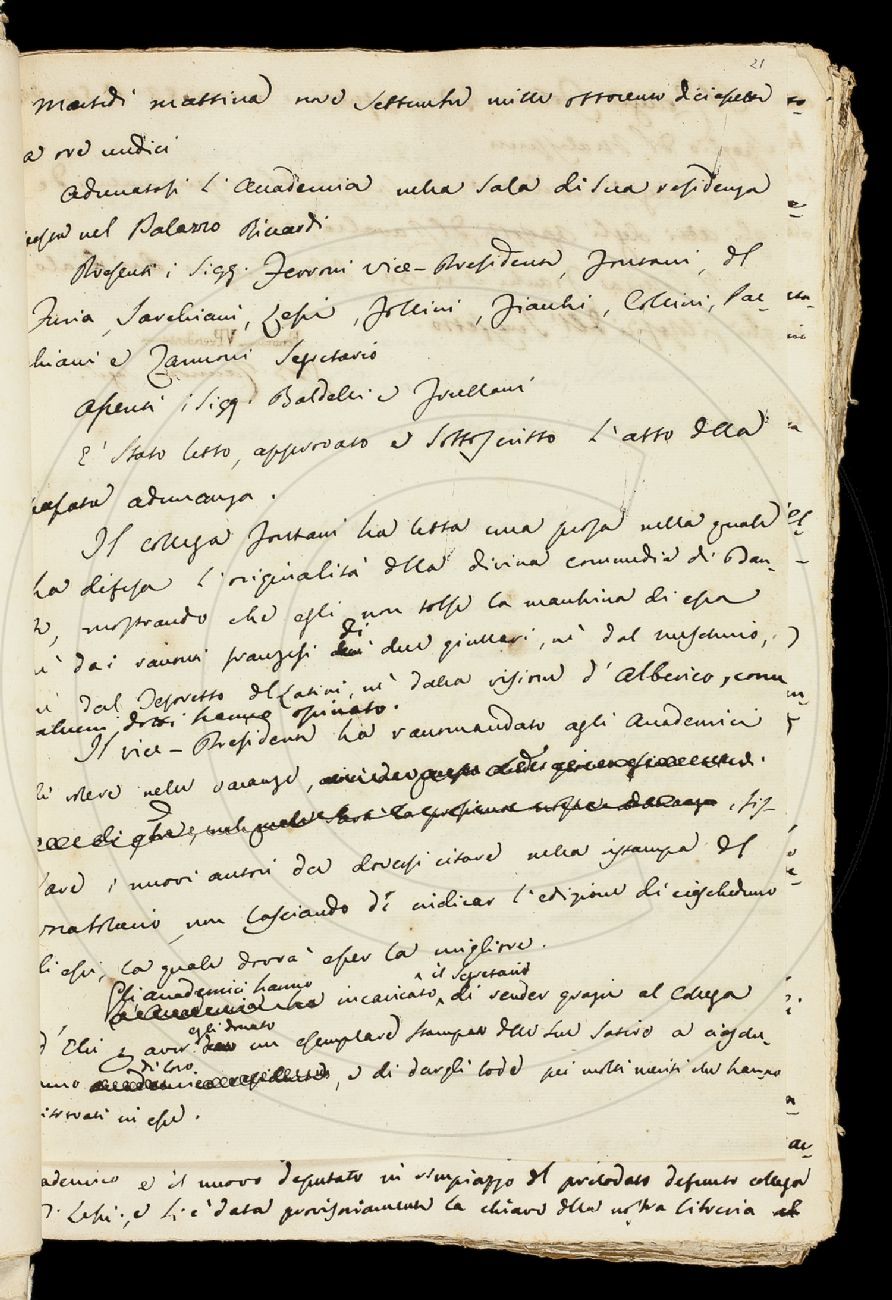 21
Martedì mattina nove Settembre mille ottocento diciasette
a ore undici
Adunatasi l'Accademia nella Sala di Sua residenza
nel Palazzo Riccardi
Presenti i Sigg. Ferroni vice-Presidente, Fontani, del
Furia, Sarchiani, Lessi, Follini, Fiacchi, Collini, Pac-
chiani e Zannoni Segretario
Assenti i Sigg. Baldelli e Frullani
E' stato letto, approvato e sottoscritto l'atto della
passata adunanza.
Il collega Fontani ha letta una prosa nella quale
ha difesa l'originalità della divina commedia di Dan-
te, mostrando che egli non tolse la macchina di essa
nè dai racconti franzesi di due giullari, nè dal meschino,
nè dal Tesoretto del Latini, nè dalla visione d'Alberico, come
alcuni dotti hanno opinato.
Il vice-Presidente ha raccomandato agli Accademici
di volere nelle vacanze,
, fis-
sare i nuovi autori da doversi citare nella ristampa del
vocabolario, non lasciando di indicar l'edizione di ciascheduno
di essi, la quale dovrà esser la migliore.
Gli Accademici hanno
L'Accademia ha incaricato il Segretario di render grazie al Collega
d'Elci avere egli donato un esemplare stampato delle sue Satire a ciaschedu-
no di loro, e di dargli lode pei molti meriti che hanno
ritrovati in esse.
ademico e il nuovo deputato in rimpiazzo del prelodato defunto collega
Lessi, e li è data provvisoriamente la chiave della nostra libreria al